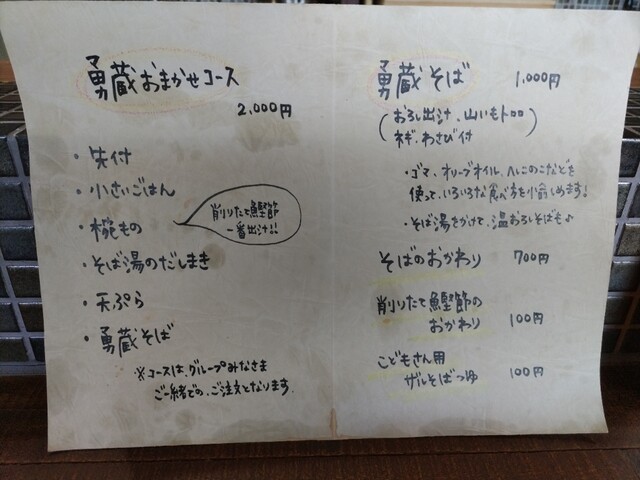 勇蔵おまかせコース
2,000円
・先付
・小さいごはん
・椀もの
削りたて鰹節
一番出汁!!
・そば湯のだしまき
・天ぷら
・勇蔵そば
※コースは、グループみなさま
ご一緒での、ご注文となります。
勇蔵そば 1,000円
(おろし出汁、山いもトロロ
ネギ、わさび付)
・ゴマ、オリーブオイル、へしこのこなどを
使って、いろいろな食べ方を楽しめます!
・そば湯をかけて、温おろしそばも♪
そばのおかわり 700円
削りたて鰹節の
おかわり 100円
こどもさん用
ザルそばつゆ 100円